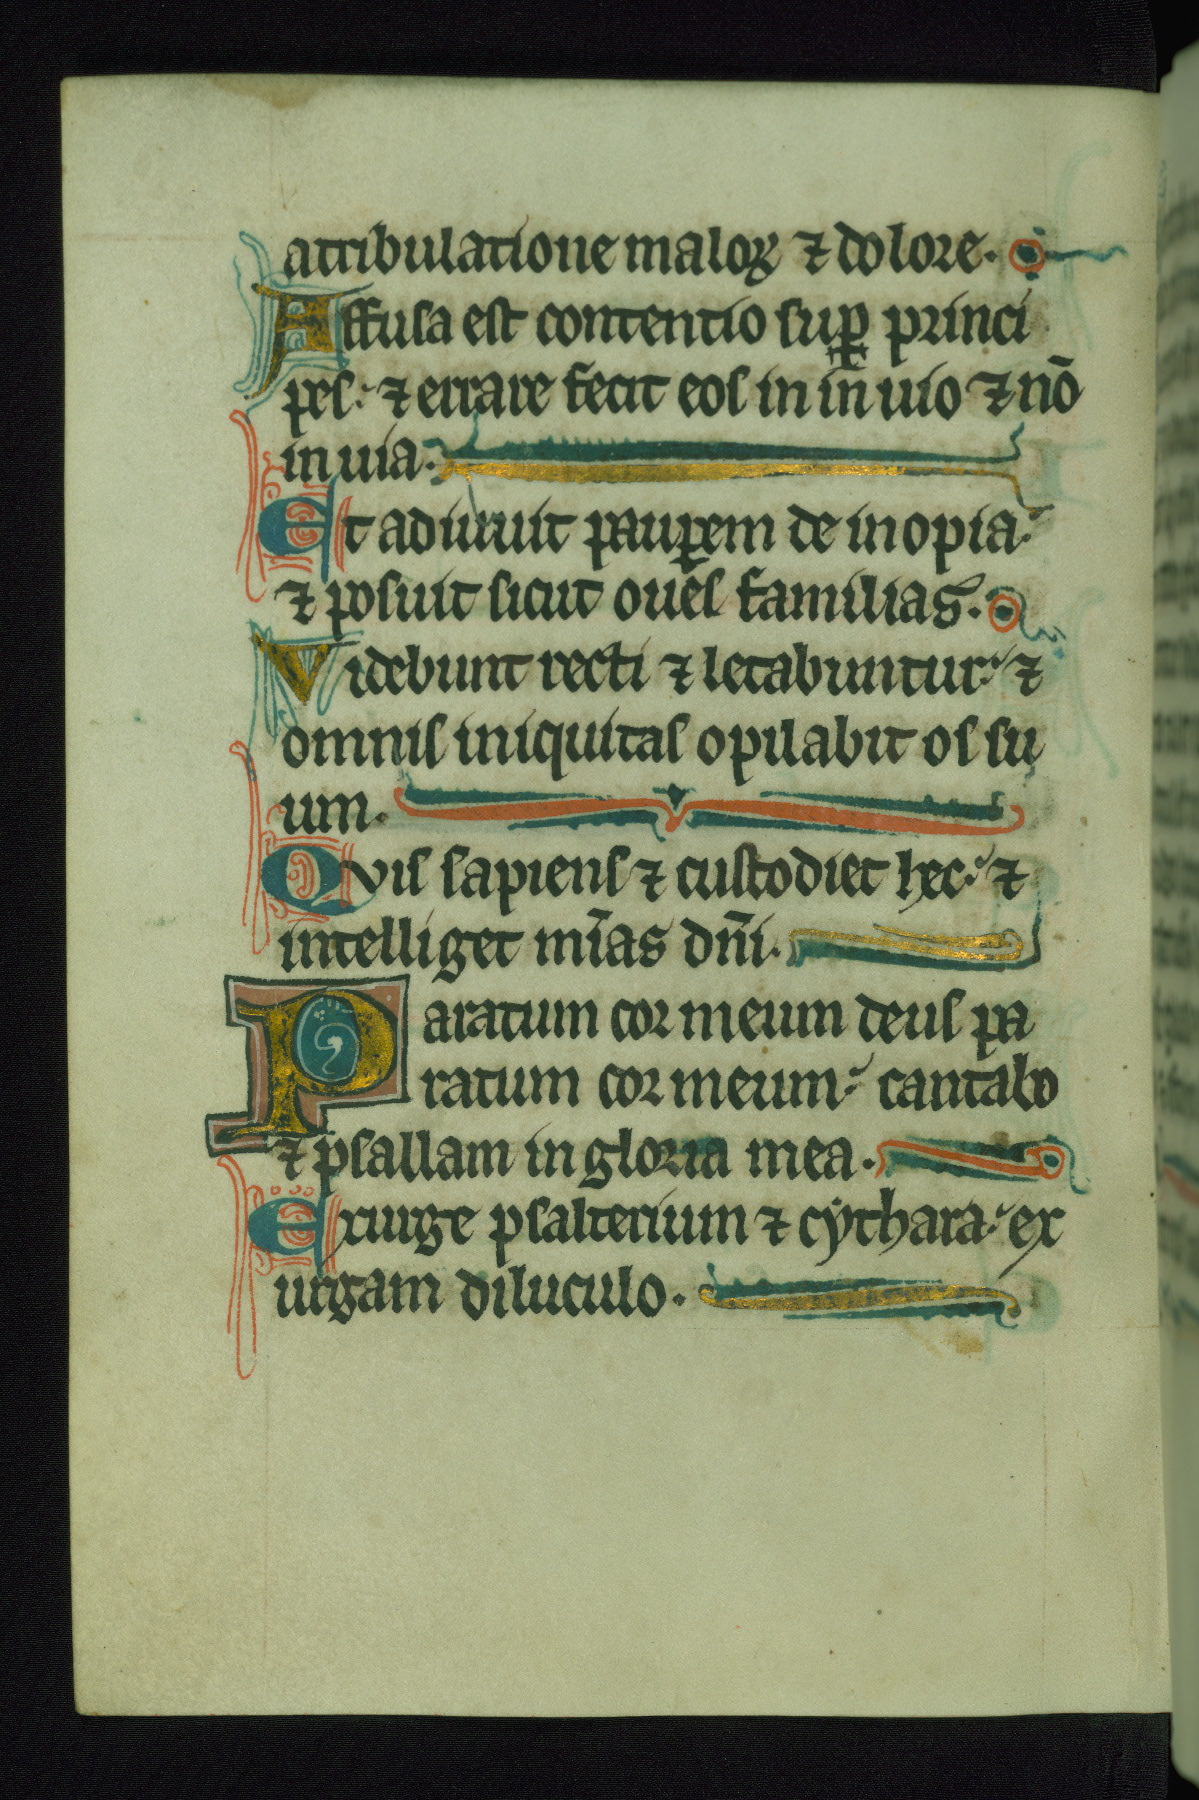 a tribulatione maloꝝ ⁊ dolore.
Affusa est contentio suꝑ princi
pes: ⁊ errare fecit eos in īn uio ⁊ nō
in uia.
Et adiuuit pauꝑem de inopia:
⁊ posuit sicut oues familias.
Videbunt recti ⁊ letabuntur: ⁊
omnis iniquitas opilabit os su
um.
Qvis sapiens ⁊ custodiet hec: ⁊
intelliget mīas dn̄i.
Paratum cor meum deus pa
ratum cor meum: cantabo
⁊ psallam in gloria mea.
Exurge psalterium ⁊ cythara: ex
urgam diluculo.